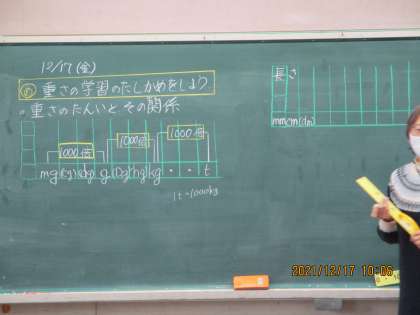 12/17(金)
め 重さの学習のたしかめをしよう
。重さのたんいと、その関係
1000倍 1000倍 1000倍
mg (cg) (dg) g (Dg) (hg) kg ・ ・ t
1t=1000kg
長さ
mm cm (dm)
2021/12/17 10:06